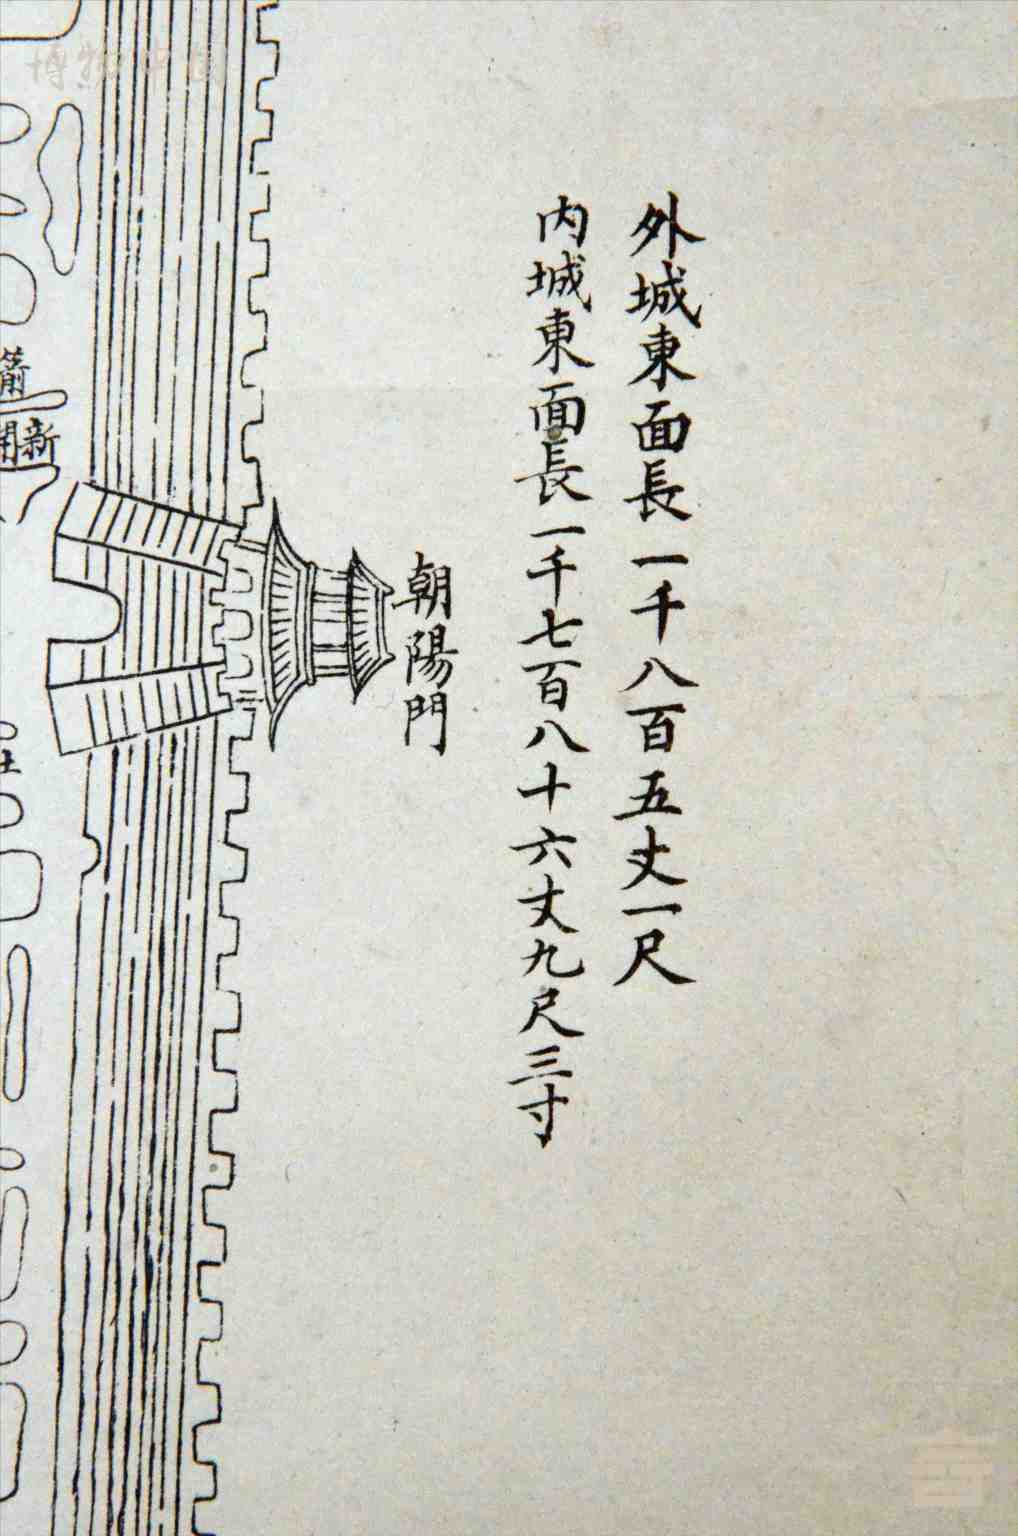 外城東面長一千八百五丈一尺
内城東面長一千七百八十六丈九尺三寸
朝陽門
新開
箭
博物中国